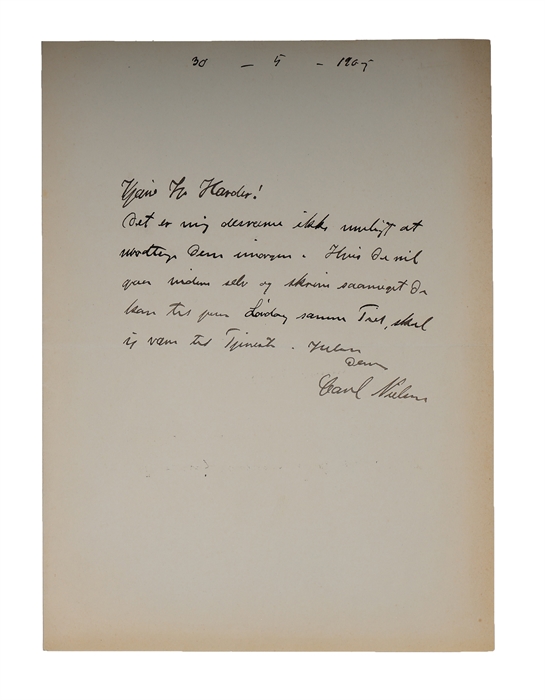 30 – 5 – 1905
Kjære Hr Harder!
Det er mig desværre ikke muligt at
modtage Dem imorgen. Hvis De vil
gaa videre selv og skrive saameget De
kan til paa Lørdag samme Tid, skal
jeg være til Tjeneste.
Deres
Carl Nielsen